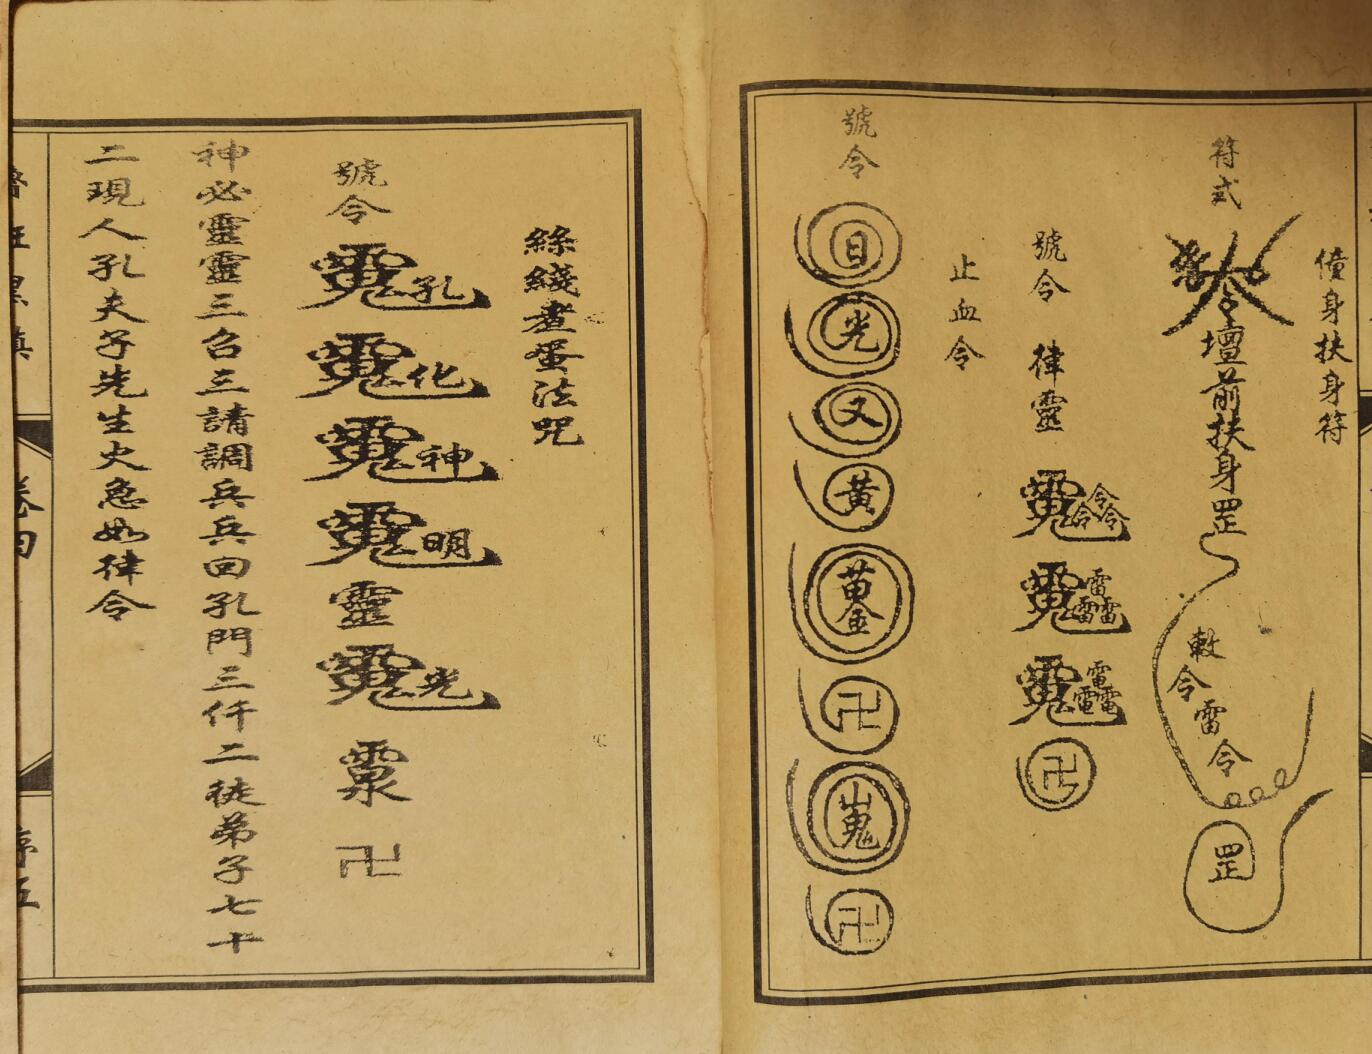 僮身扶身符
符式
令壇前扶身罡
敕令雷令
罡
號令 律靈
令令令
雷雷雷
電電電
卍
止血令
號令
日
光
又
黃
苗金
卍
嵬
卍
絲綫晝蛋法咒
號令
孔
化
神
明
靈
光
卍
神必靈靈三召三請調兵兵回孔門三仟二徒弟子七十
二現人孔夫子先生火急如律令
卷四
序五